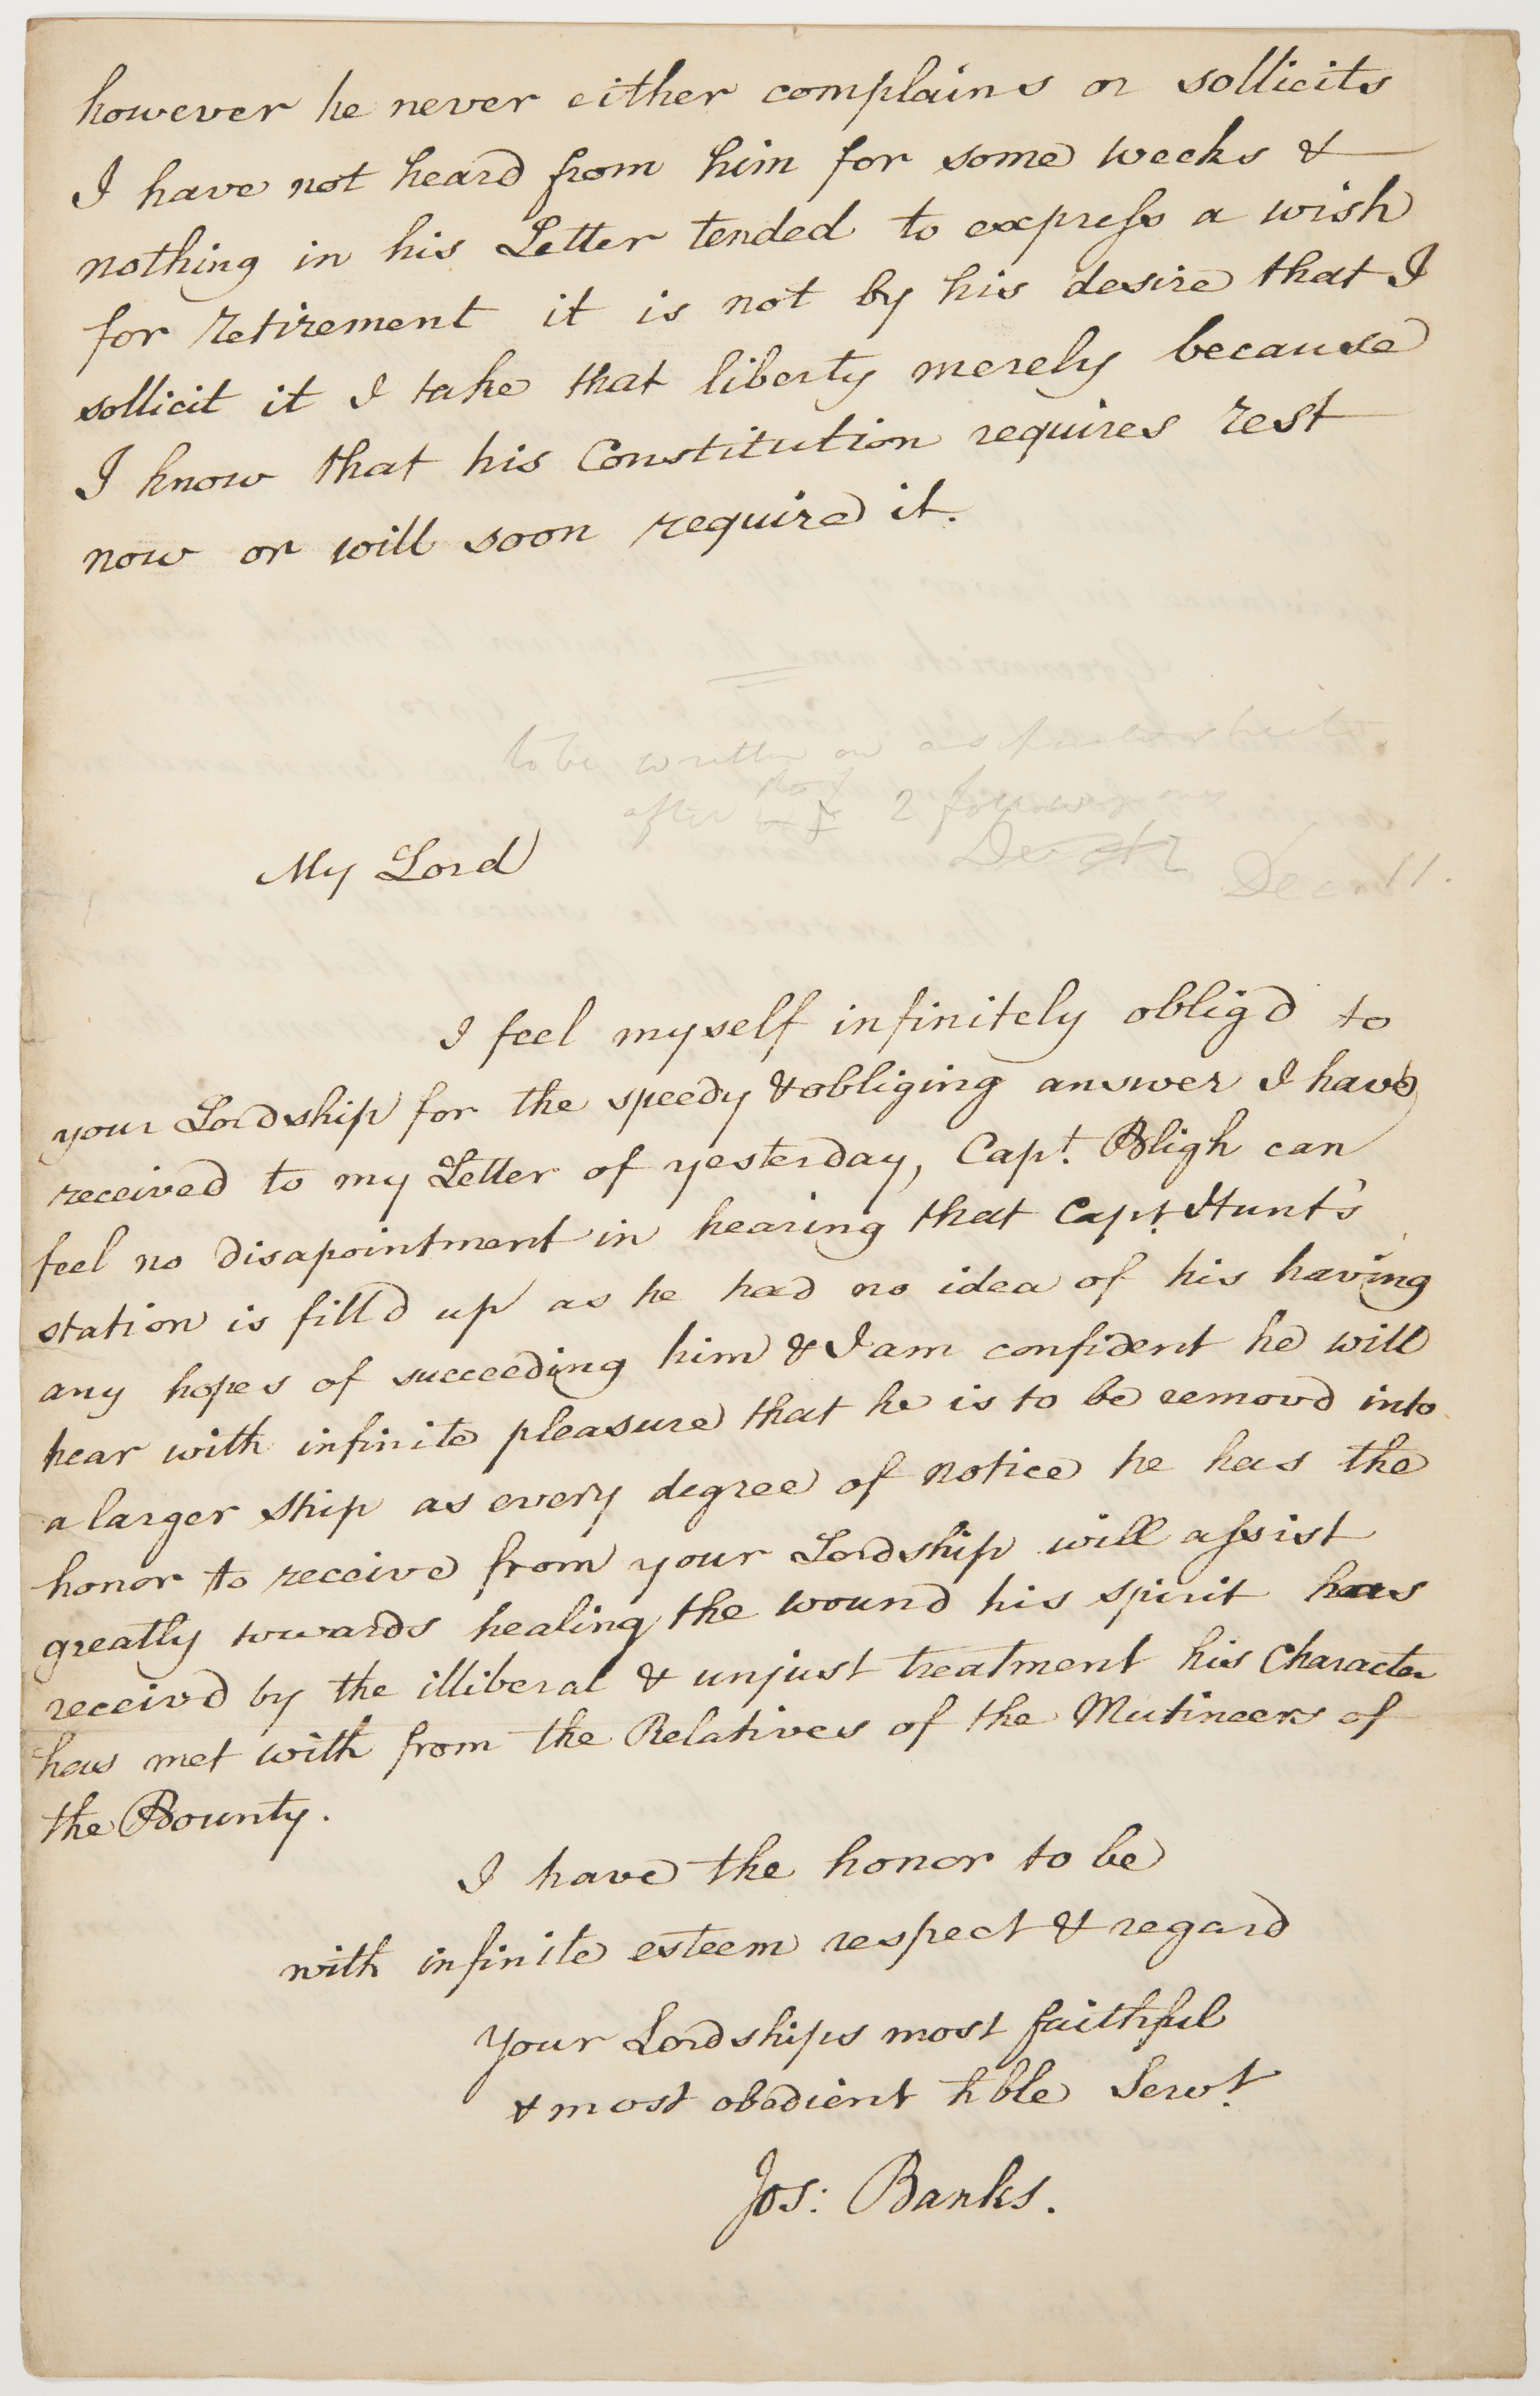 however he never either complains or sollicits
I have not heard from him for some weeks &
nothing in his Letter tended to express a wish
for retirement it is not by his desire that I
sollicit it I take that liberty merely because
I know that his Constitution requires rest
now or will soon require it.
to be written on
after 2 following ones
My Lord
Decr 11.
I feel myself infinitely oblig'd to
your Lordship for the speedy & obliging answer I have
received to my Letter of yesterday, Capt. Bligh can
feel no disapointment in hearing that Capt. Hunt's
station is filld up as he had no idea of his having
any hopes of succeeding him & I am confident he will
hear with infinite pleasure that he is to be removd into
a larger ship as every degree of notice he has the
honor to receive from your Lordship will assist
greatly towards healing the wound his spirit has
receivd by the illiberal & unjust treatment his Character
has met with from the Relatives of the Mutineers of
the Bounty.
I have the honor to be
with infinite esteem respect & regard
your Lordships most faithful
& most obedient hble Servt.
Jos: Banks.